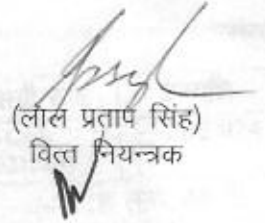 (लाल प्रताप सिंह)
वित्त नियन्त्रक